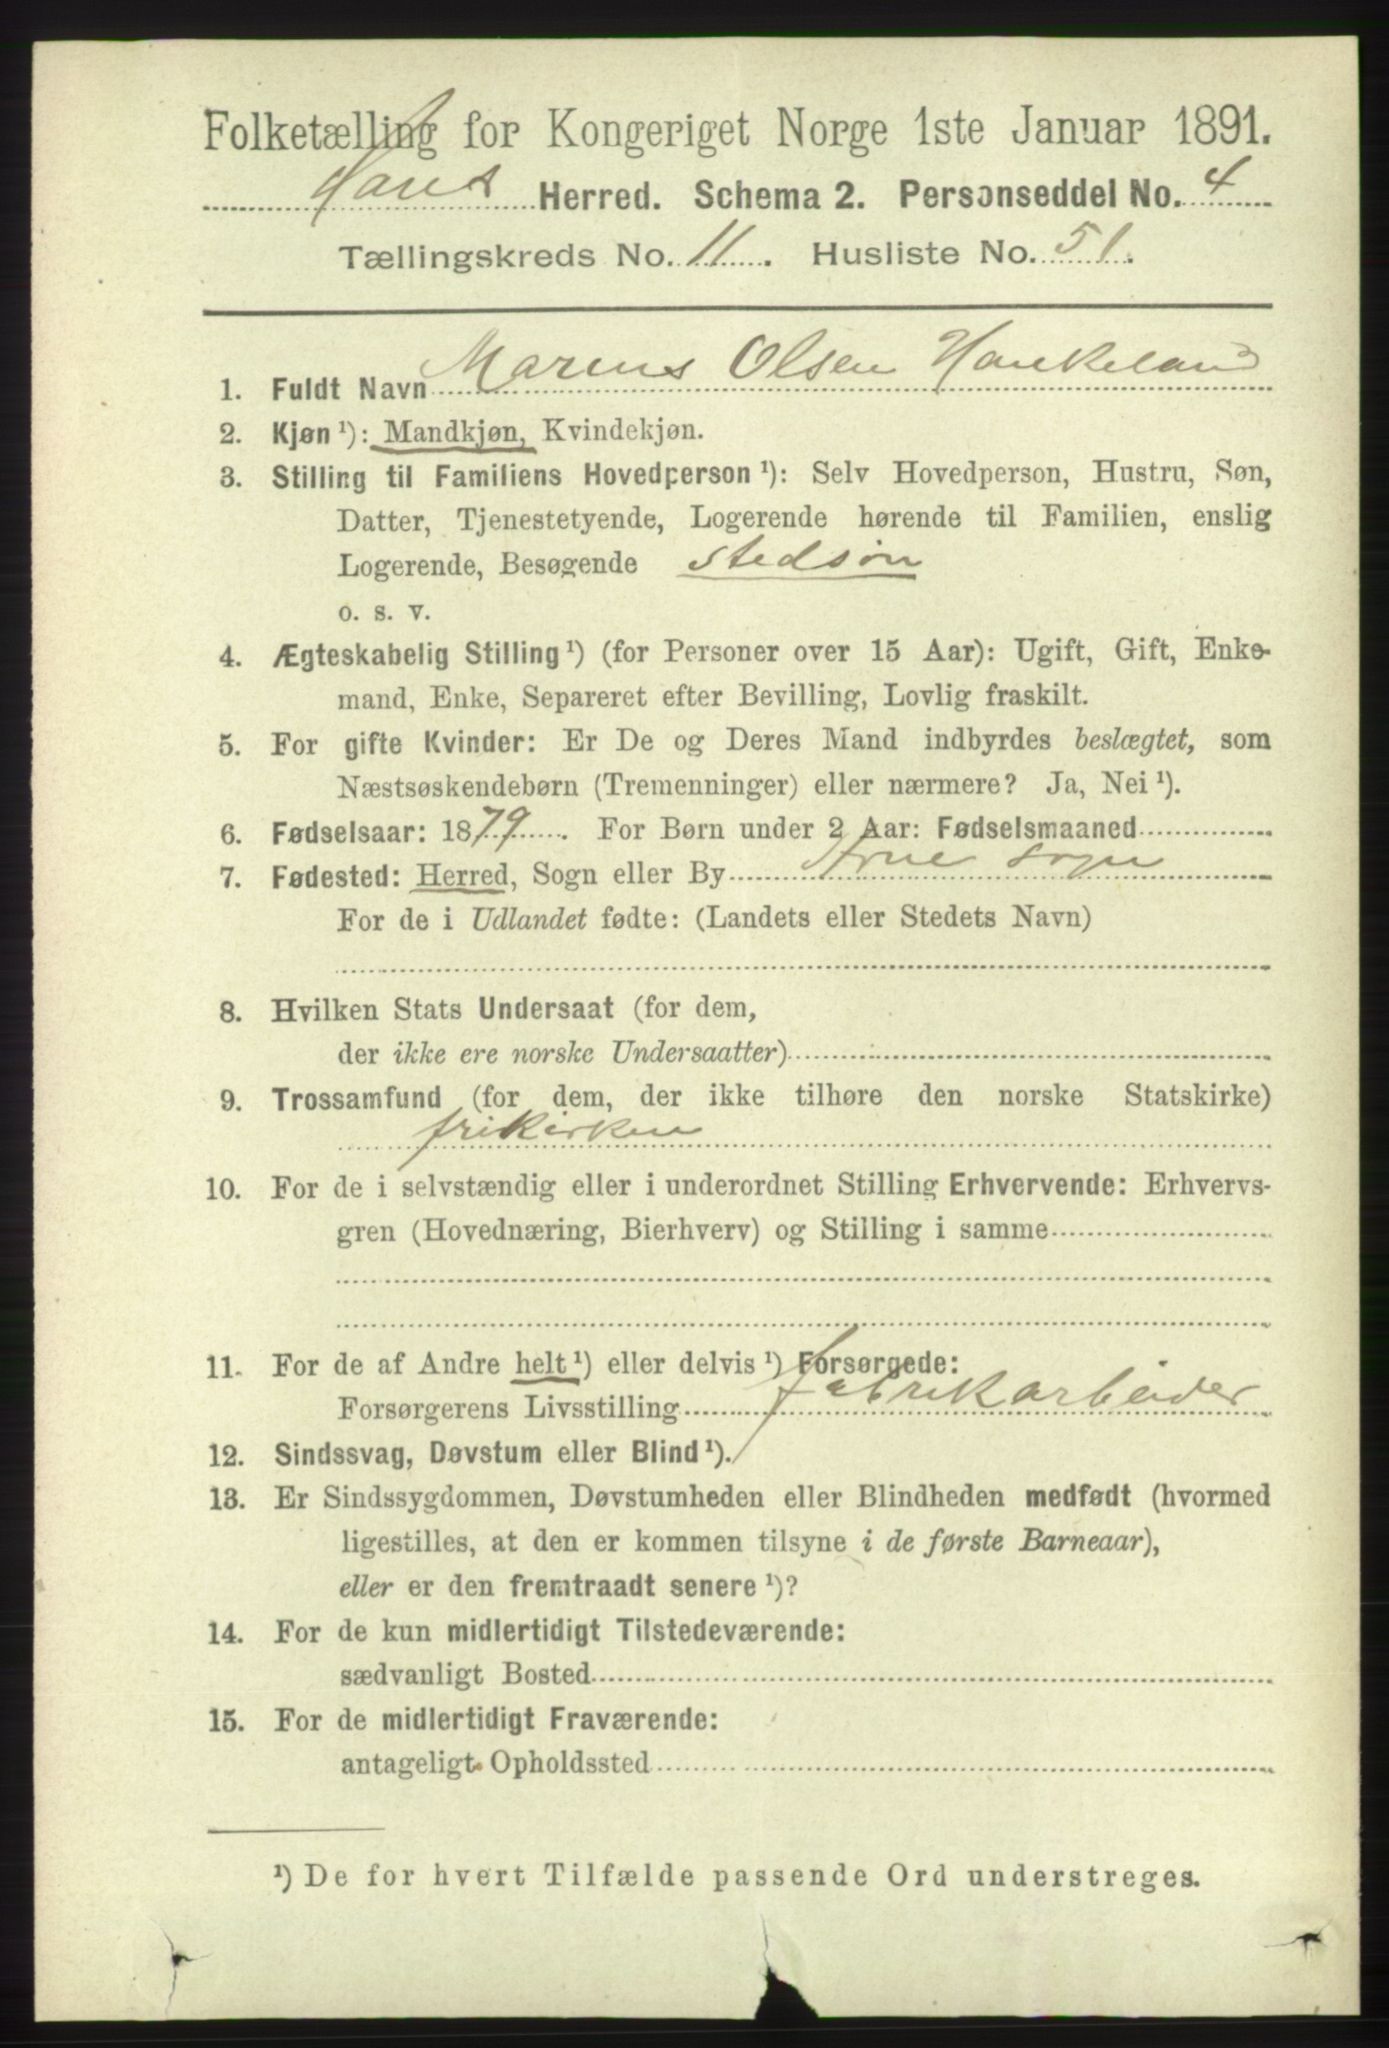 Folketælling for Kongeriget Norge 1ste Januar 1891.
Haus Herred. Schema 2. Personseddel No. 4
Tællingskreds No. 11. Husliste No. 51.
1. Fuldt Navn Marius Olsen Haukeland
2. Kjøn ¹): Mandkjøn, Kvindekjøn.
3. Stilling til Familiens Hovedperson ¹): Selv Hovedperson, Hustru, Søn,
Datter, Tjenestetyende, Logerende hørende til Familien, enslig
Logerende, Besøgende stedsøn
o. s. v.
4. Ægteskabelig Stilling ¹) (for Personer over 15 Aar): Ugift, Gift, Enke-
mand, Enke, Separeret efter Bevilling, Lovlig fraskilt.
5. For gifte Kvinder: Er De og Deres Mand indbyrdes beslægtet, som
Næstsøskendebørn (Tremenninger) eller nærmere? Ja, Nei ¹).
6. Fødselsaar: 1879. For Børn under 2 Aar: Fødselsmaaned
7. Fødested: Herred, Sogn eller By Arne sogn
For de i Udlandet fødte: (Landets eller Stedets Navn)
8. Hvilken Stats Undersaat (for dem,
der ikke ere norske Undersaatter)
9. Trossamfund (for dem, der ikke tilhøre den norske Statskirke)
frikirken
10. For de i selvstændig eller i underordnet Stilling Erhvervende: Erhvervs-
gren (Hovednæring, Bierhverv) og Stilling i samme
11. For de af Andre helt ¹) eller delvis ¹) Forsørgede:
Forsørgerens Livsstilling fabrikarbeider
12. Sindssvag, Døvstum eller Blind ¹).
13. Er Sindssygdommen, Døvstumheden eller Blindheden medfødt (hvormed
ligestilles, at den er kommen tilsyne i de første Barneaar),
eller er den fremtraadt senere ¹)?
14. For de kun midlertidigt Tilstedeværende:
sædvanligt Bosted
15. For de midlertidigt Fraværende:
antageligt Opholdssted
¹) De for hvert Tilfælde passende Ord understreges.